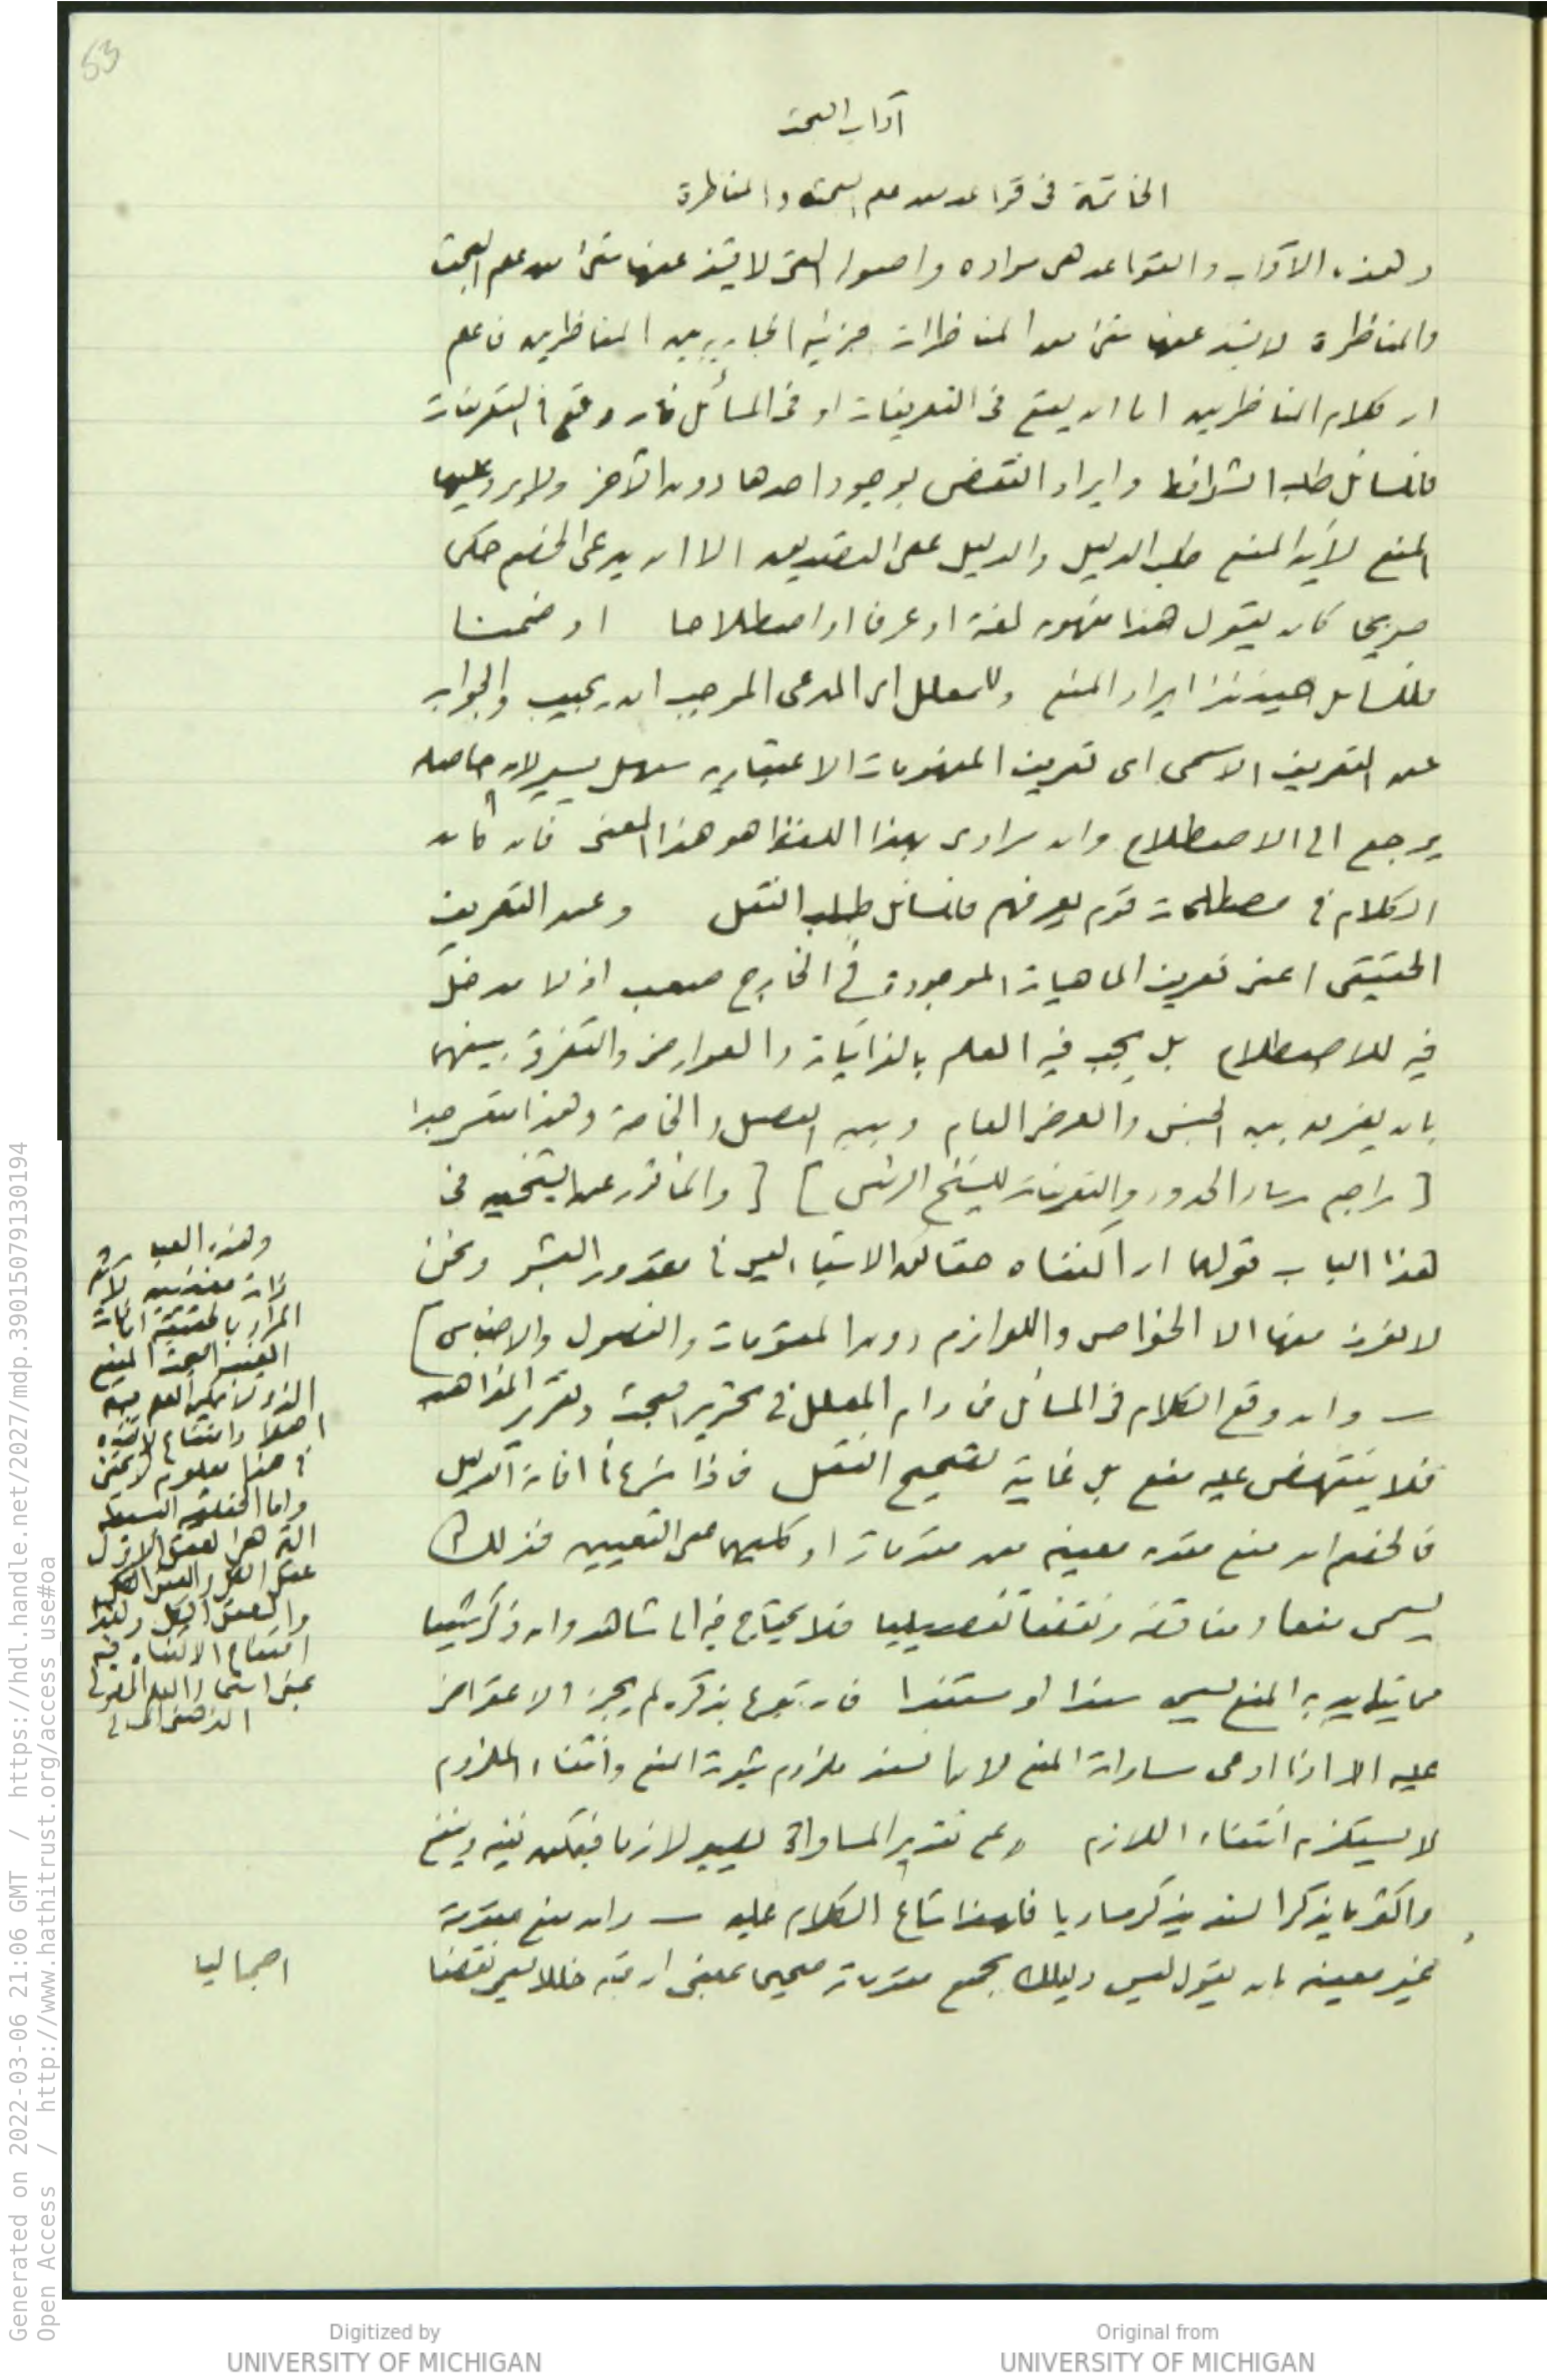 53
آداب البحث
الخاتمة فى قواعد من علم البحث والمناظرة
وهذه الآداب والقواعد هى مواده واصوله التى لا يشذ عنها شئ من علم البحث
والمناظرة لا يشذ عنها شئ من المناظرات جزئية الجارية بين المناظرين فاعلم
ان كلام المناظرين اما ان يقع فى التعريفات او فى المسائل فان وقع فى التعريفات
فللسائل طلب الشرائط وايراد النقض بوجود احدهما دون الآخر ولا يرد عليها
المنع لأن المنع طلب الدليل والدليل على التصديق الا ان يدعى الخصم حكما
صريحا كان يقول هذا مفهومه لغة او عرفا او اصطلاحا او ضمنا
فللسائل حينئذ ايراد المنع وللمعلل اى المدعى الموجب ان يجيب والجواب
عن التعريف الاسمى اى تعريف المفهومات الاعتبارية سهل يسير لان حاصله
يرجع الى الاصطلاح وان مرادى بهذا اللفظ هو هذا المعنى فان كان
الكلام فى مصطلحات قوم يعرفهم فللسائل طلب النقل وعن التعريف
الحقيقى اعنى تعريف الماهيات الموجودة فى الخارج صعب اذ لا مدخل
فيه للاصطلاح بل يجب فيه العلم بالذاتيات والعوارض والتفرقة بينهما
بان يفرق بين الجنس والعرض العام وبين الفصل والخاصة وهذا متعسر جدا
[ راجع رسالة الحدود والتعريفات للشيخ الرئيس ] [ والمأثور عن الشيخين فى
هذا الباب قولهما ان اكتناه حقائق الاشياء ليس فى مقدور البشر ونحن
لا نعرف منها الا الخواص واللوازم دون المقومات والفصول والاجناس ]
— وان وقع الكلام فى المسائل فما دام المعلل فى تحرير المبحث وتقرير المذاهب
فلا ينتهض عليه منع بل غاية تصحيح النقل فاذا شرع فى اقامة الدليل
فالخصم ان منع مقدمة معينة من مقدماته او كليهما على التعيين فذلك
يسمى منعا ومناقضة ونقضا تفصيليا فلا يحتاج فيه الى شاهد وان ذكر شيئا
مما يتأيد به المنع يسمى سندا او مستندا فان تبرع بذكره لم يجز الاعتراض
عليه الا اذا ادعى مساواة المنع لان السند ملزوم ثبوت المنع وانتفاء الملزوم
لا يستلزم انتفاء اللازم وعلى تقدير المساواة يصير لازما فيمكن نفيه وينفع
واكثر ما يذكر السند يذكر مساويا فلهذا شاع الكلام عليه — وان منع مقدمة
غير معينة بان يقول ليس دليلك بجميع مقدماته صحيحا بمعنى ان فيه خللا يسمى نقضا
اجماليا
وهذه العبارة
ذات مغزيين لان
المراد بالحقيقة ان كان
الغيب البحت المنيع
الذى لا يمكن العلم به
اصلا وامتناع
معلوم
واما الحقيقة البسيطة
التى هى العقل الاول
عقل الكل والعقل الكل
امتناع الاكتناه فيه